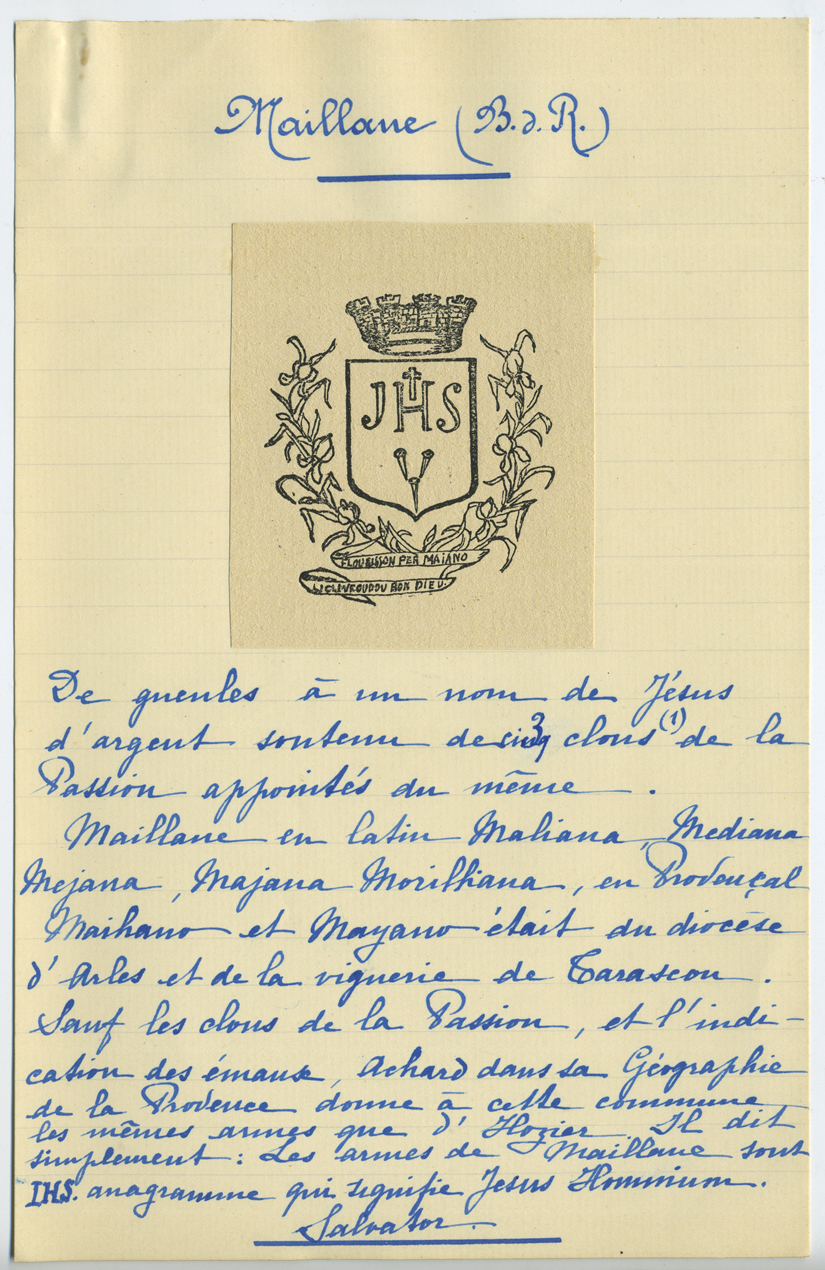 Maillane (B.d.R.)
JHS
FLOURISSON PER MAIANO
LI CLAVEU DOU BON DIEU.
De gueules à un nom de Jésus
d'argent soutenu de 3 clous (1) de la
Passion appointés du même.
Maillane en latin Maliana, Mediana
Mejana, Majana Morilhiana, en Provençal
Maihano et Mayano était du diocèse
d'Arles et de la viguerie de Tarascon.
Sauf les clous de la Passion, et l'indi-
cation des émaux, Achard dans sa Géographie
de la Provence donne à cette commune
les mêmes armes que d'Hozier. Il dit
simplement : Les armes de Maillane sont
IHS. anagramme qui signifie Jesus Hominum.
Salvator.